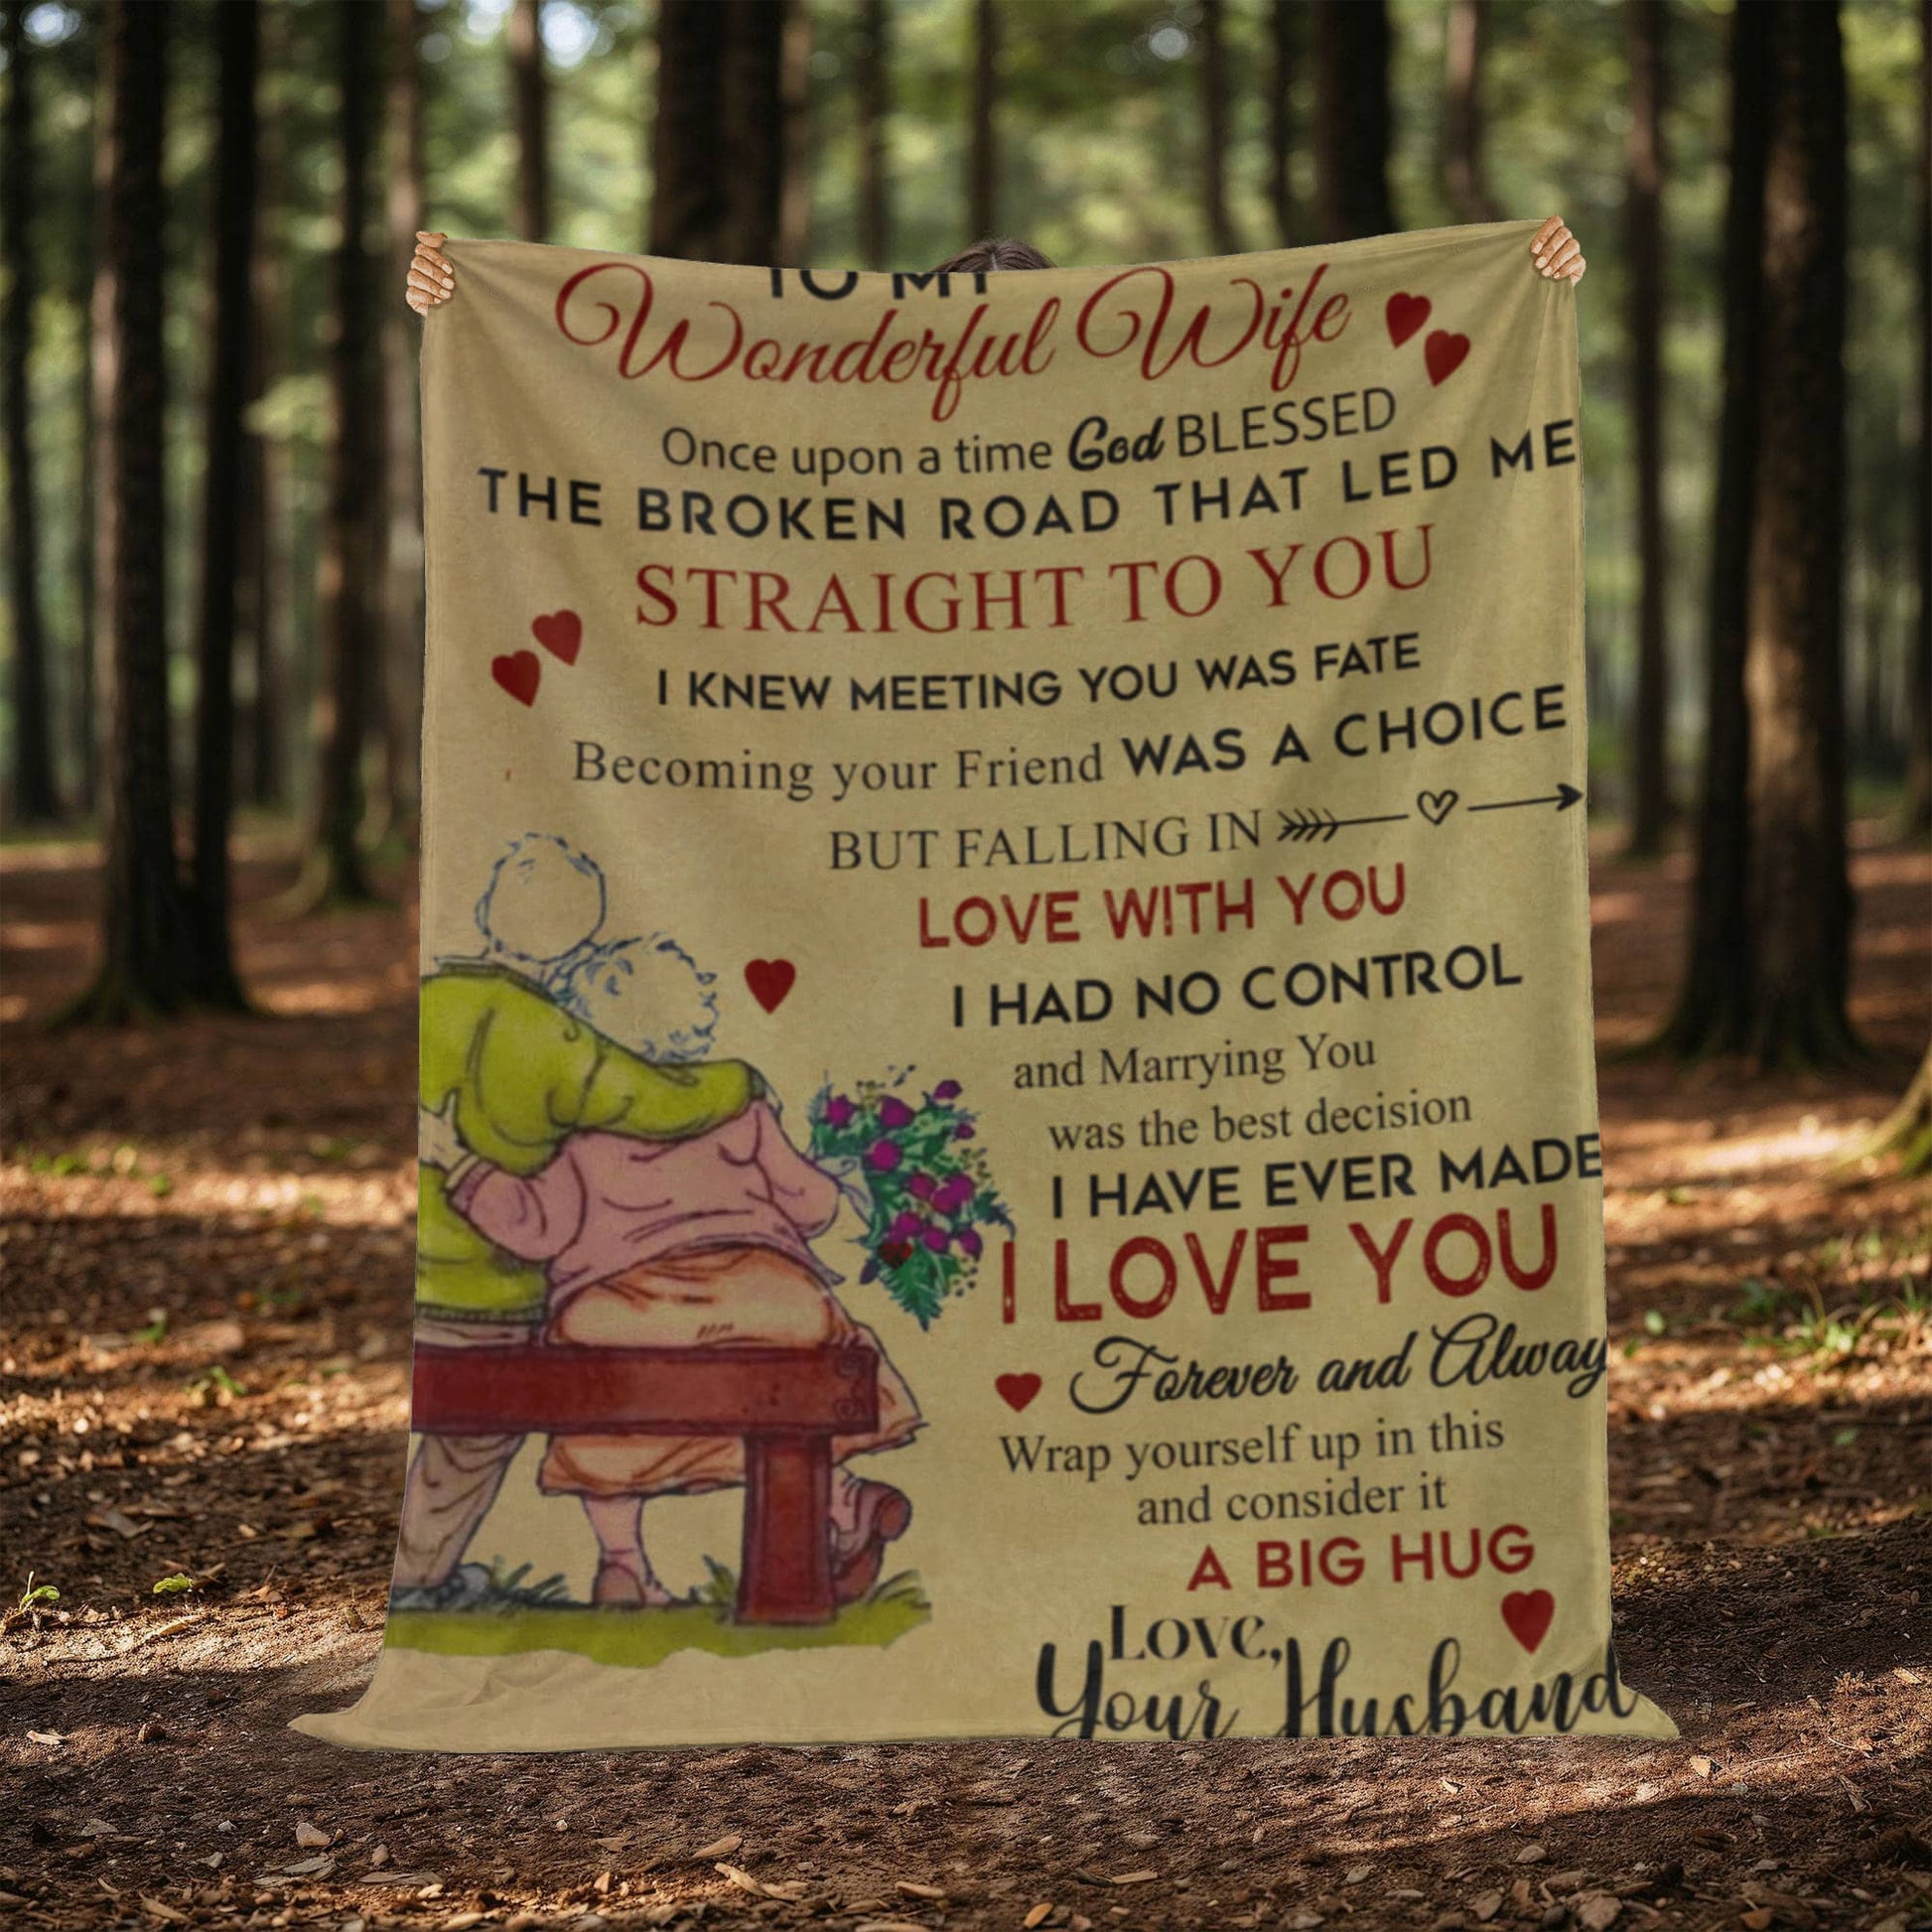 TO MY
Wonderful Wife
Once upon a time God BLESSED
THE BROKEN ROAD THAT LED ME
STRAIGHT TO YOU
I KNEW MEETING YOU WAS FATE
Becoming your Friend WAS A CHOICE
BUT FALLING IN
LOVE WITH YOU
I HAD NO CONTROL
and Marrying You
was the best decision
I HAVE EVER MADE
I LOVE YOU
Forever and Alway
Wrap yourself up in this
and consider it
A BIG HUG
Love,
Your Husband